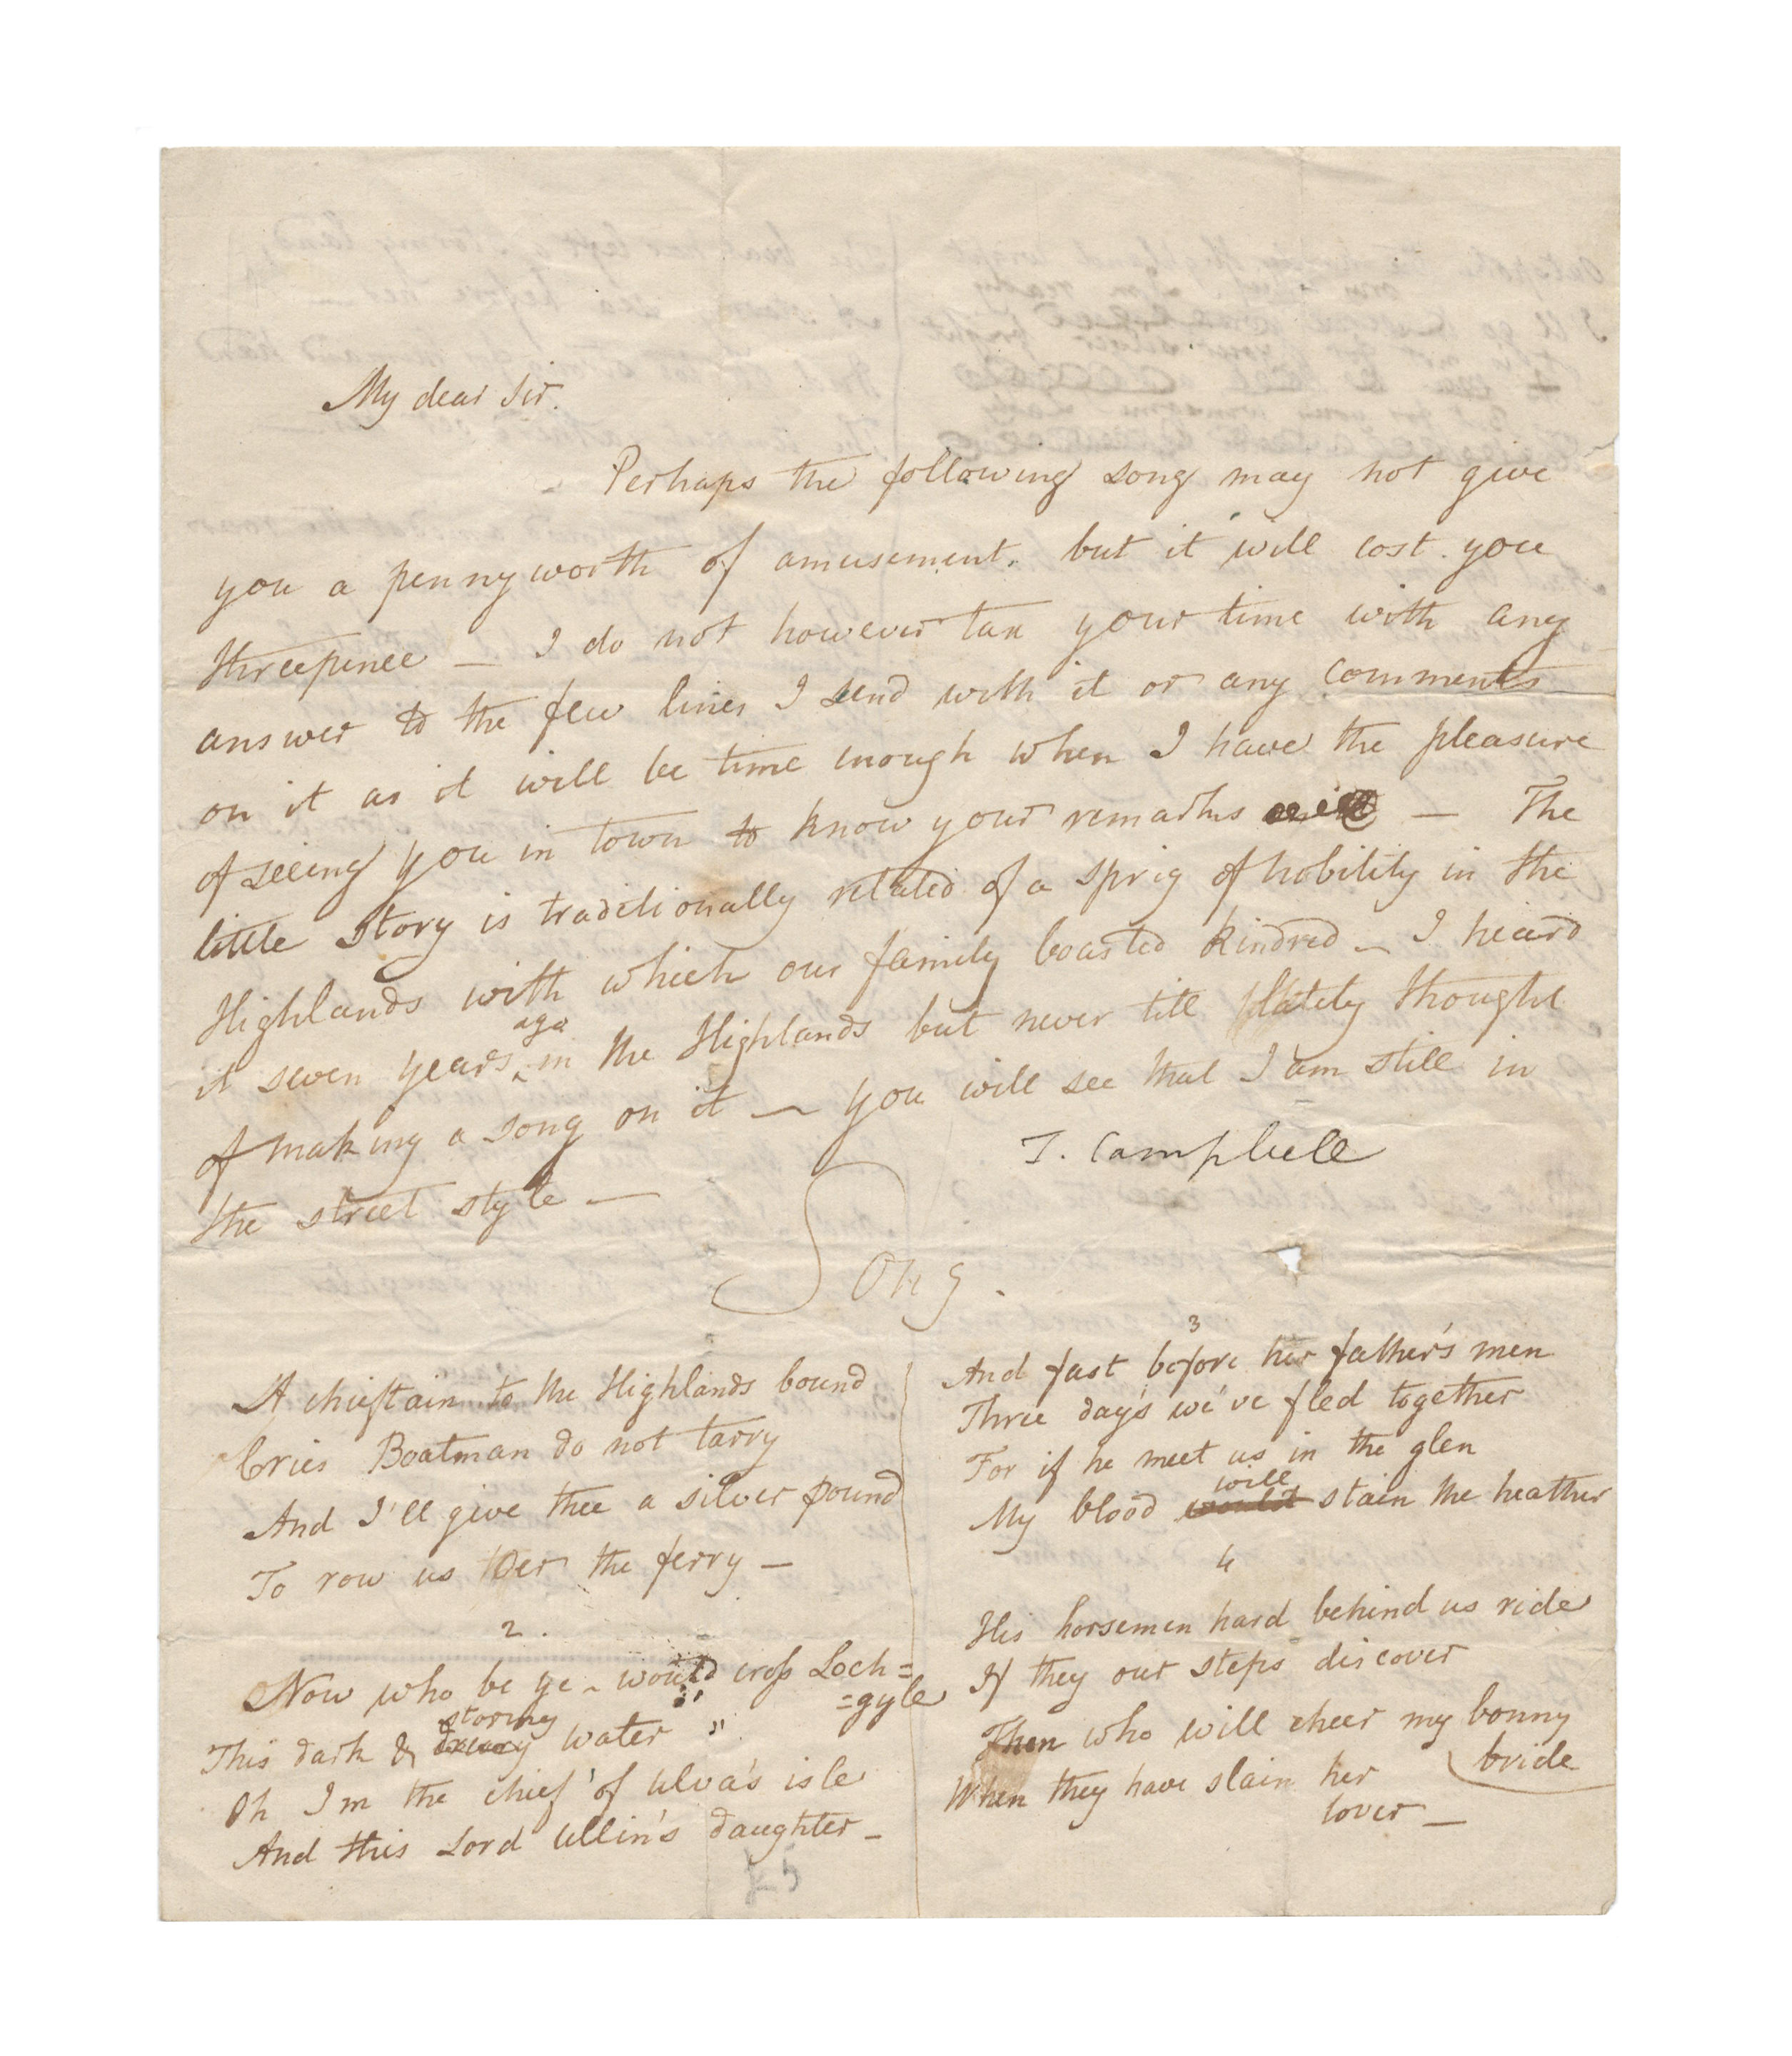 My dear Sir.
Perhaps the following song may not give
you a pennyworth of amusement. but it will cost you
threepence — I do not however tax your time with any
answer to the few lines I send with it or any comments
on it as it will be time enough when I have the pleasure
of seeing you in town to know your remarks — The
little Story is traditionally related of a sprig of nobility in the
Highlands with which our family boasted kindred — I heard
it seven years ago in the Highlands but never till lately thought
of making a song on it — you will see that I am still in
the street style —
T. Campbell
Song.
A chieftain to the Highlands bound
Cries Boatman do not tarry
And I'll give thee a silver pound
To row us oer the ferry —
2.
Now who be ye — would cross Loch=
=gyle
This dark & dreary stormy water "
Oh I'm the chief of Ulva's isle
And this Lord Ullin's daughter —
£5
3
And fast before her father's men
Three days we've fled together
For if he meet us in the glen
My blood would will stain the heather
4
His horsemen hard behind us ride
If they our steps discover
Then who will cheer my bonny
bride
When they have slain her
lover —